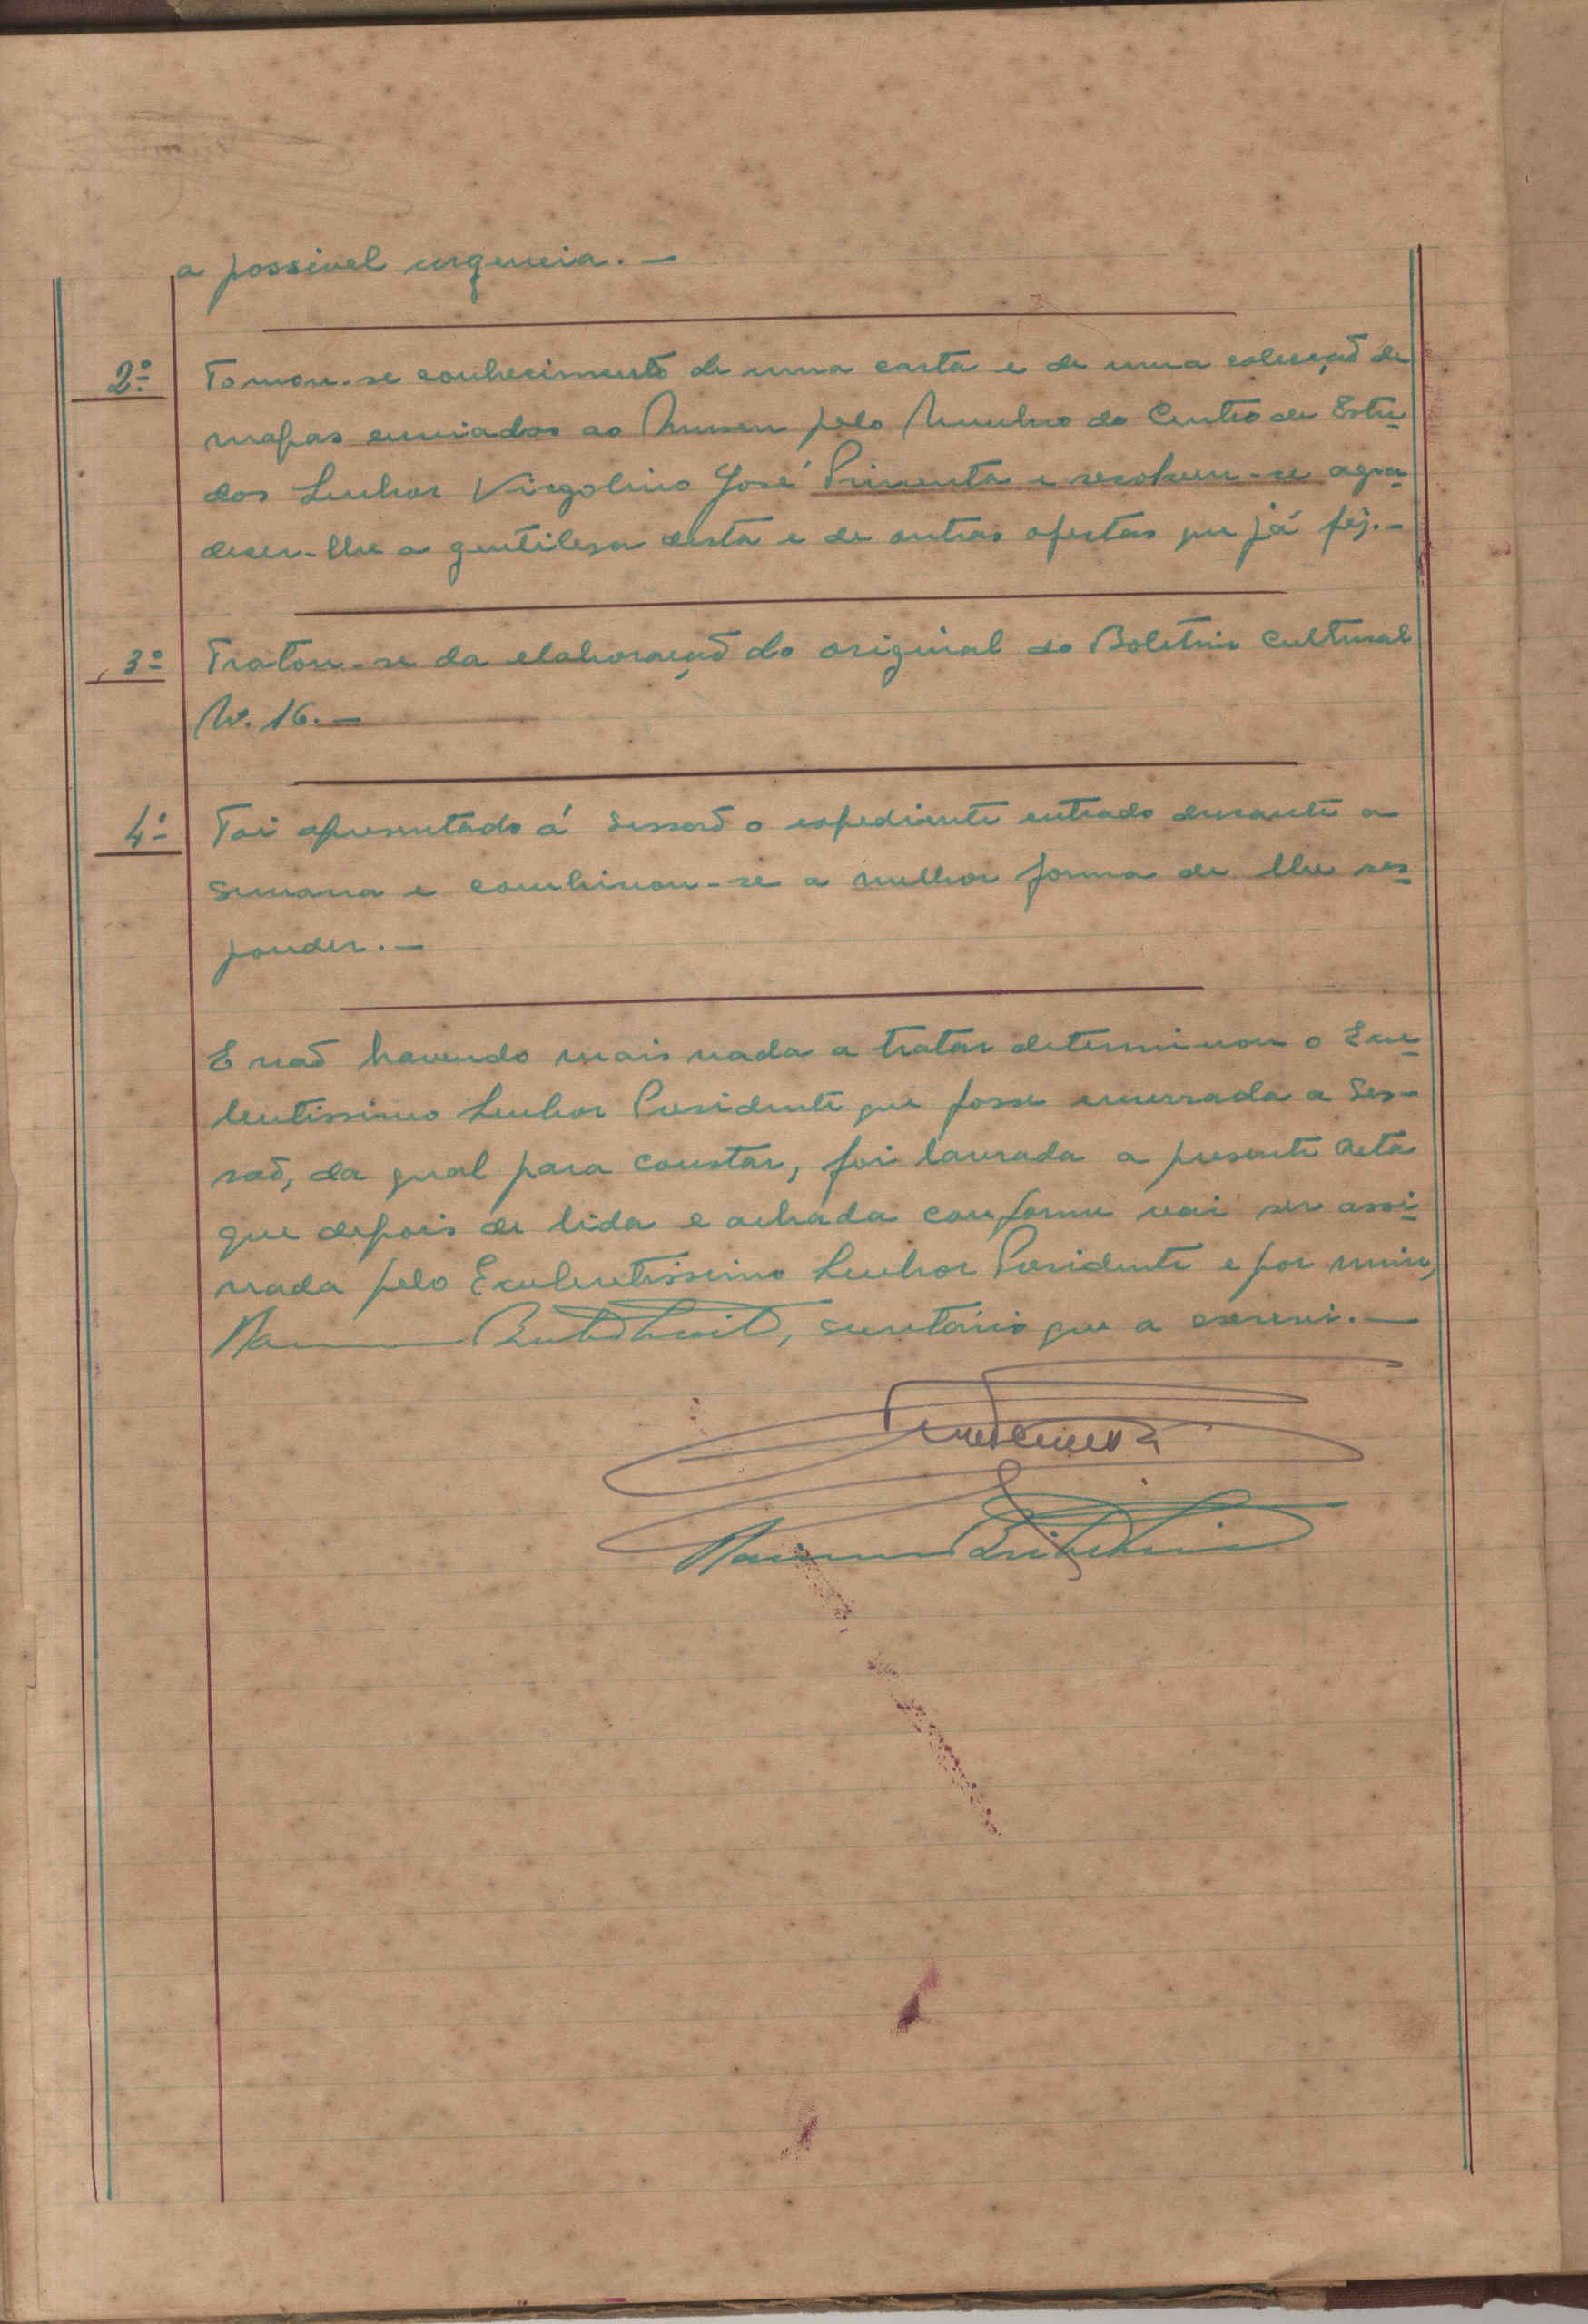 a possivel urgencia. —
2º Tomou-se conhecimento de uma carta e de uma colecção de
mapas enviados ao Museu pelo Membro do Centro de Estu-
dos Senhor Virgolino José Pimenta e resolveu-se agra-
decer-lhe a gentilesa desta e de outras ofertas que já fez. —
3º Tratou-se da elaboração do original do Boletim Cultural
Nº. 16. —
4º Foi apresentado á Sessão o expediente entrado durante a
semana e combinou-se a melhor forma de lhe res-
ponder. —
E não havendo mais nada a tratar determinou o Exce-
lentissimo Senhor Presidente que fosse encerrada a Ses-
são, da qual para constar, foi lavrada a presente acta
que depois de lida e achada conforme vai ser assi-
nada pelo Excelentissimo Senhor Presidente e por mim,
secretário que a escrevi. —